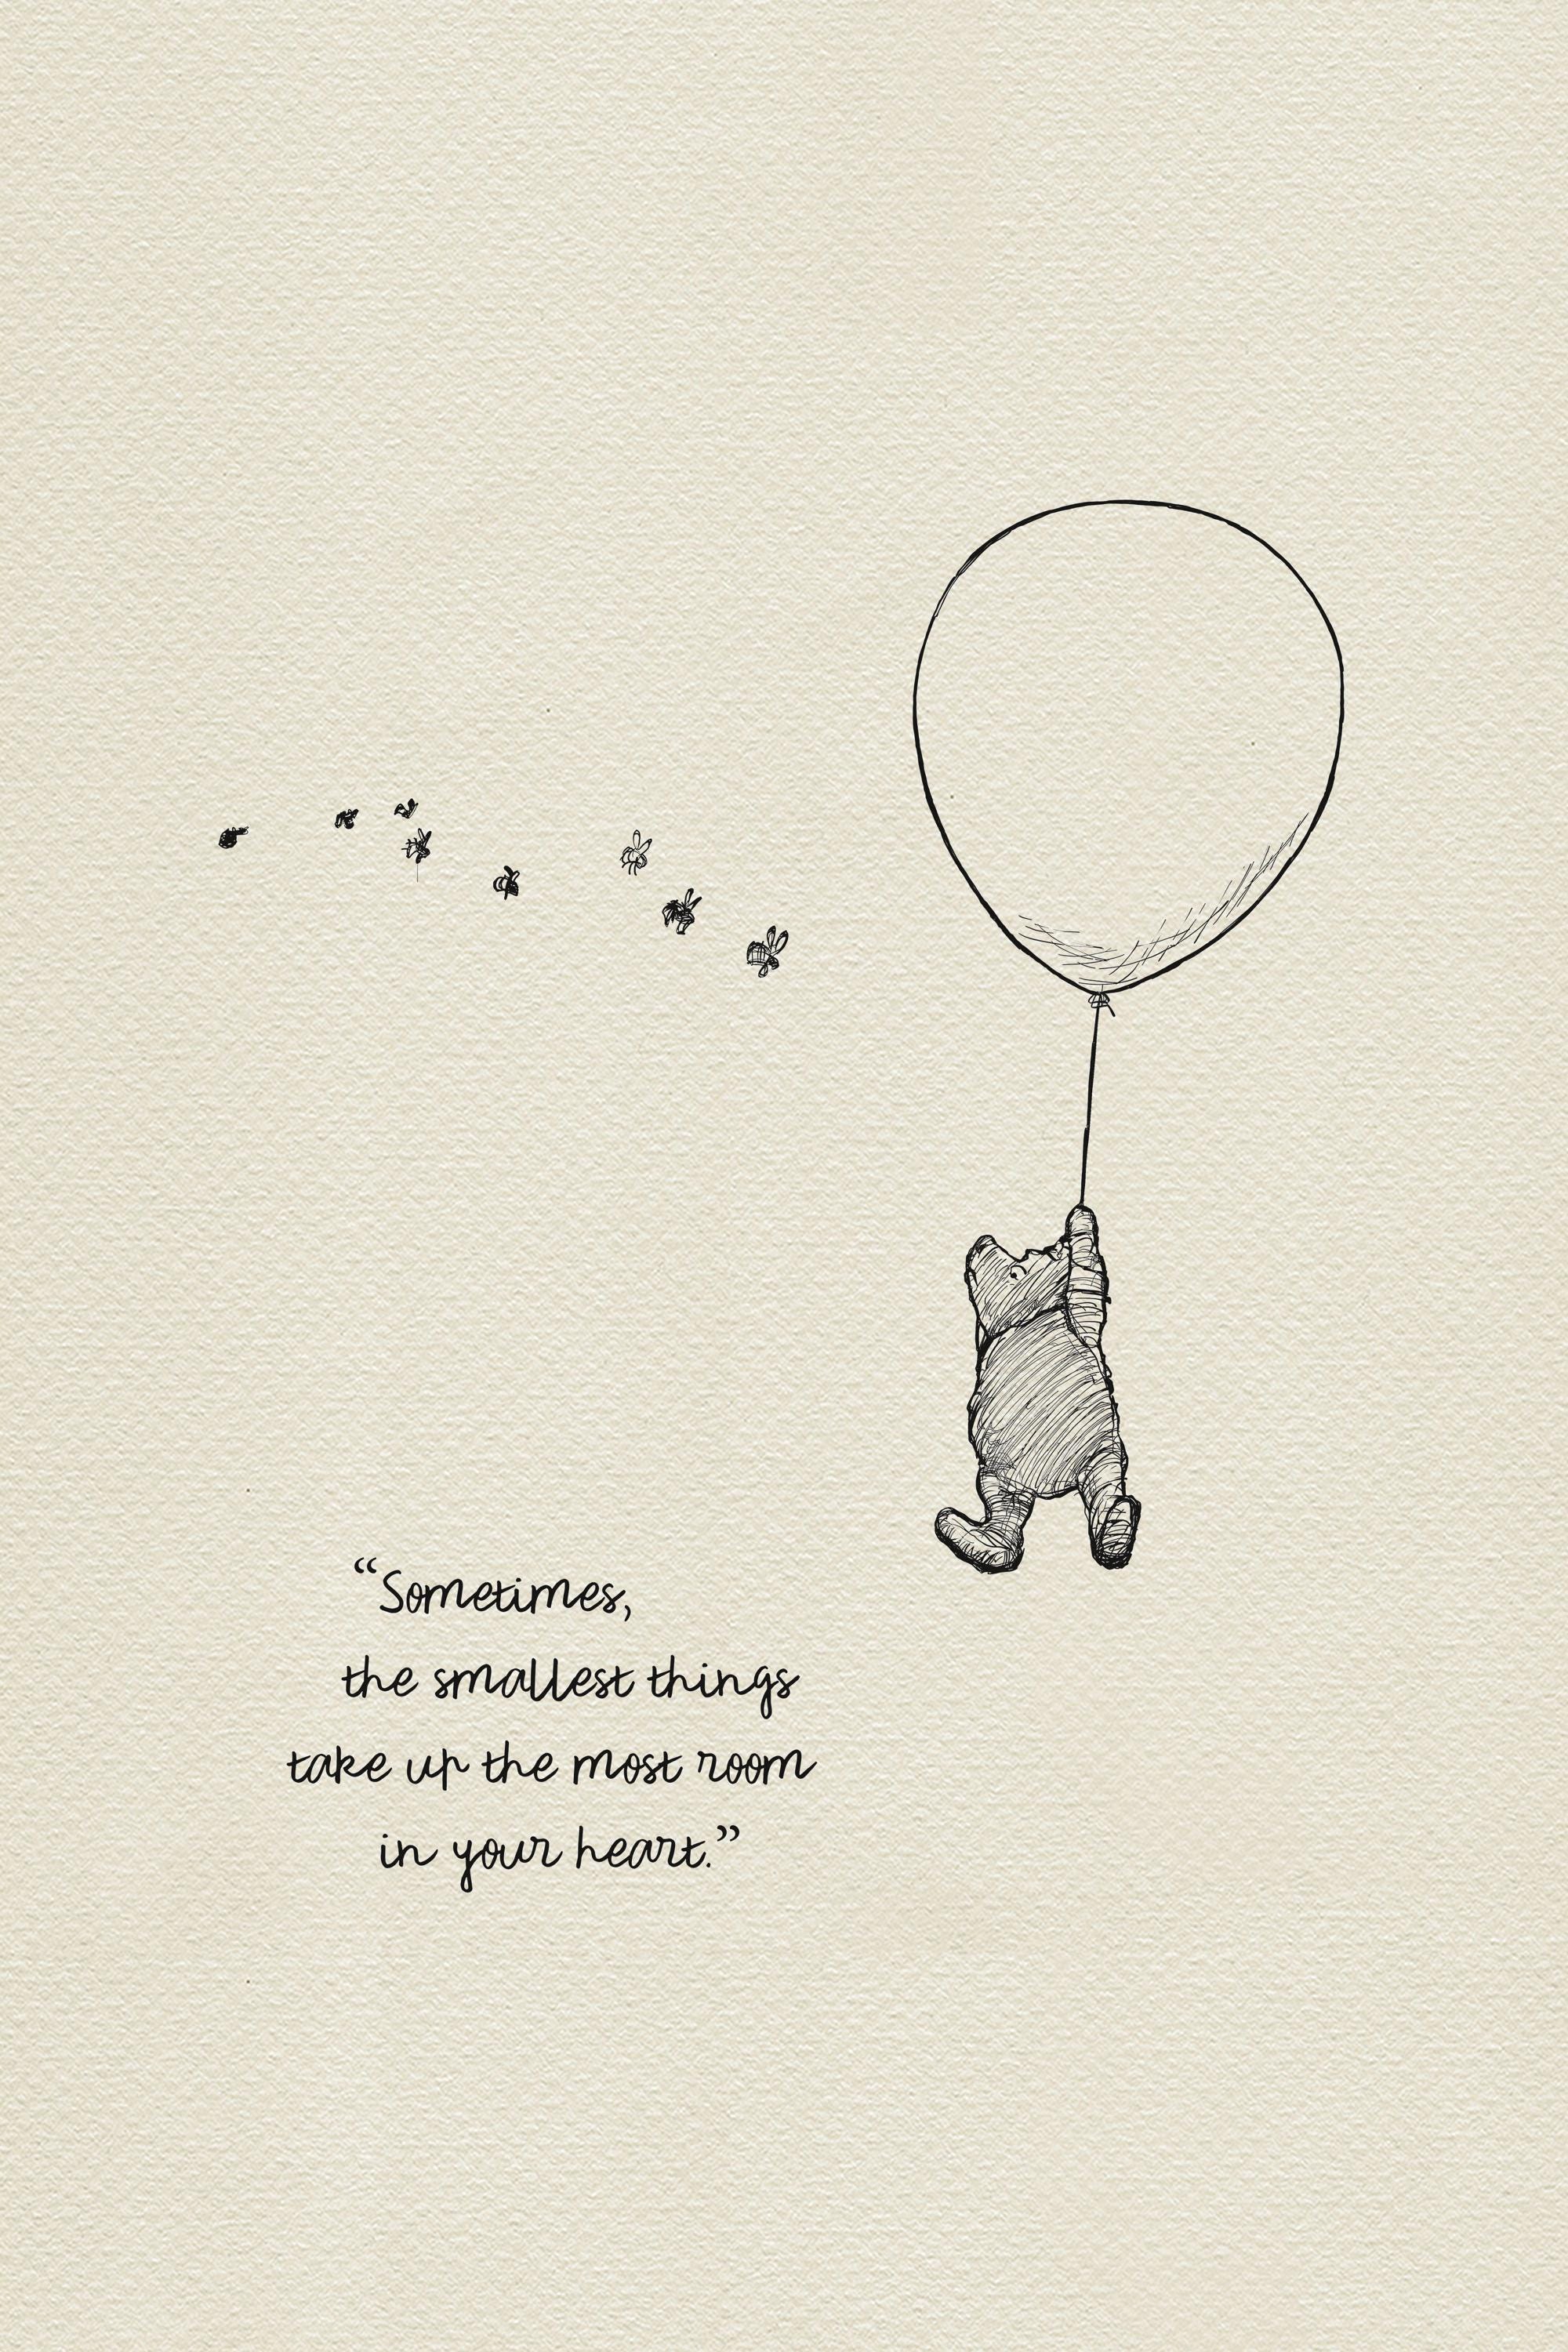 “Sometimes,
the smallest things
take up the most room
in your heart.”